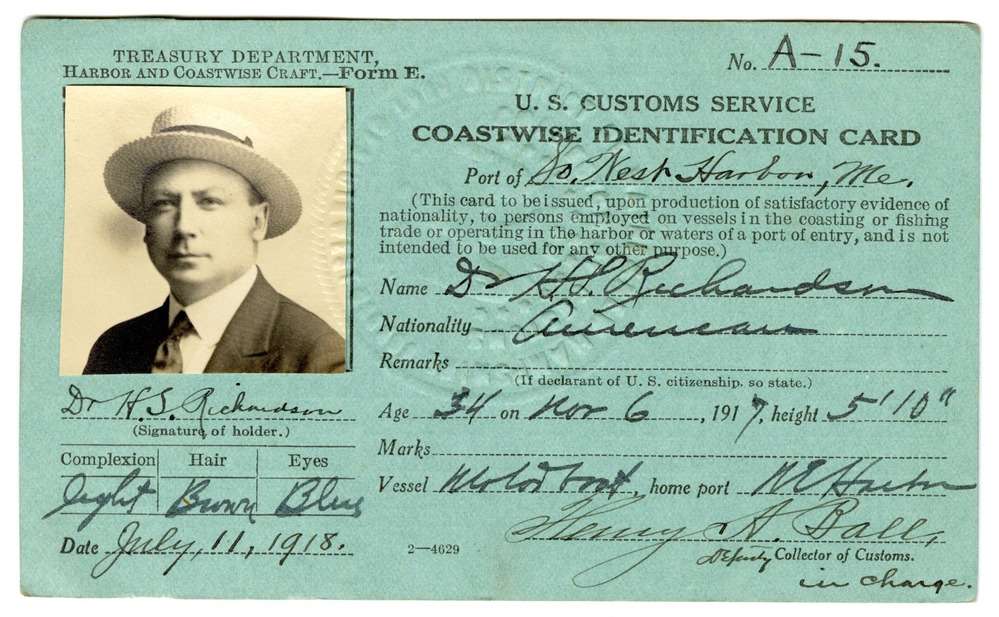 TREASURY DEPARTMENT,
HARBOR AND COASTWISE CRAFT.—Form E.
No. A-15.
U. S. CUSTOMS SERVICE
COASTWISE IDENTIFICATION CARD
Port of So. West Harbor, Me.
(This card to be issued, upon production of satisfactory evidence of
nationality, to persons employed on vessels in the coasting or fishing
trade or operating in the harbor or waters of a port of entry, and is not
intended to be used for any other purpose.)
Name Dr H. S. Richardson
Nationality American
Remarks
(If declarant of U. S. citizenship, so state.)
Age 34 on Nov 6, 1917, height 5' 10"
Marks
Vessel Motor boat, home port N E Harbor
Henry A. Ball,
Deputy Collector of Customs.
in charge.
Dr H. S. Richardson
(Signature of holder.)
Complexion Hair Eyes
light Brown Blue
Date July, 11, 1918.
2—4629